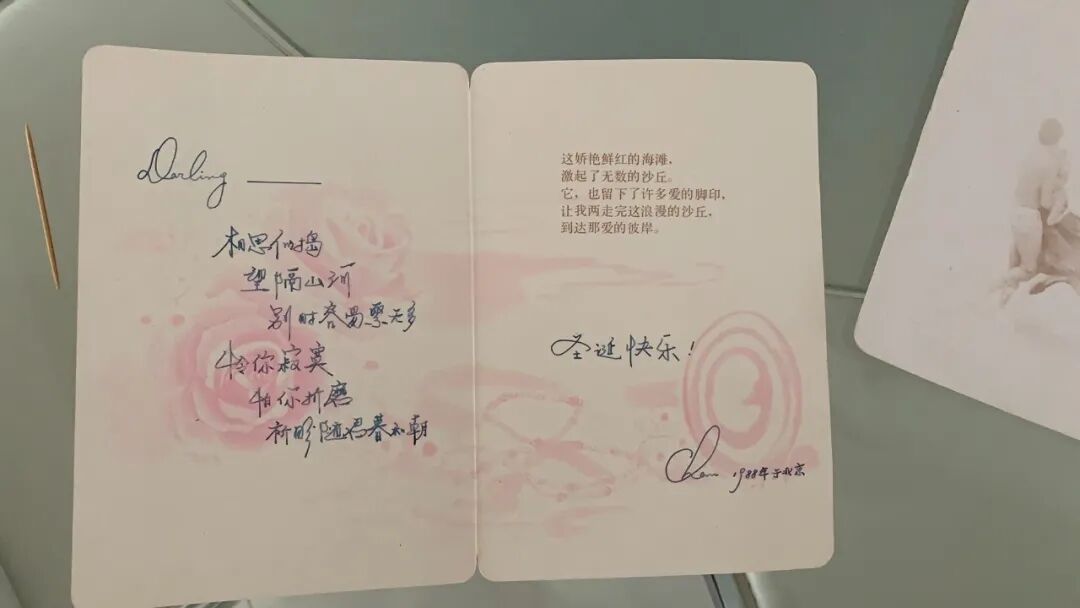 Darling ——
相思似捣
望隔山河
别时容易聚无多
怜你寂寞
怕你折磨
祈盼随得暮和朝
这娇艳鲜红的海滩，
激起了无数的沙丘。
它，也留下了许多爱的脚印，
让我两走完这浪漫的沙丘，
到达那爱的彼岸。
圣诞快乐！
Chen 1988年于北京